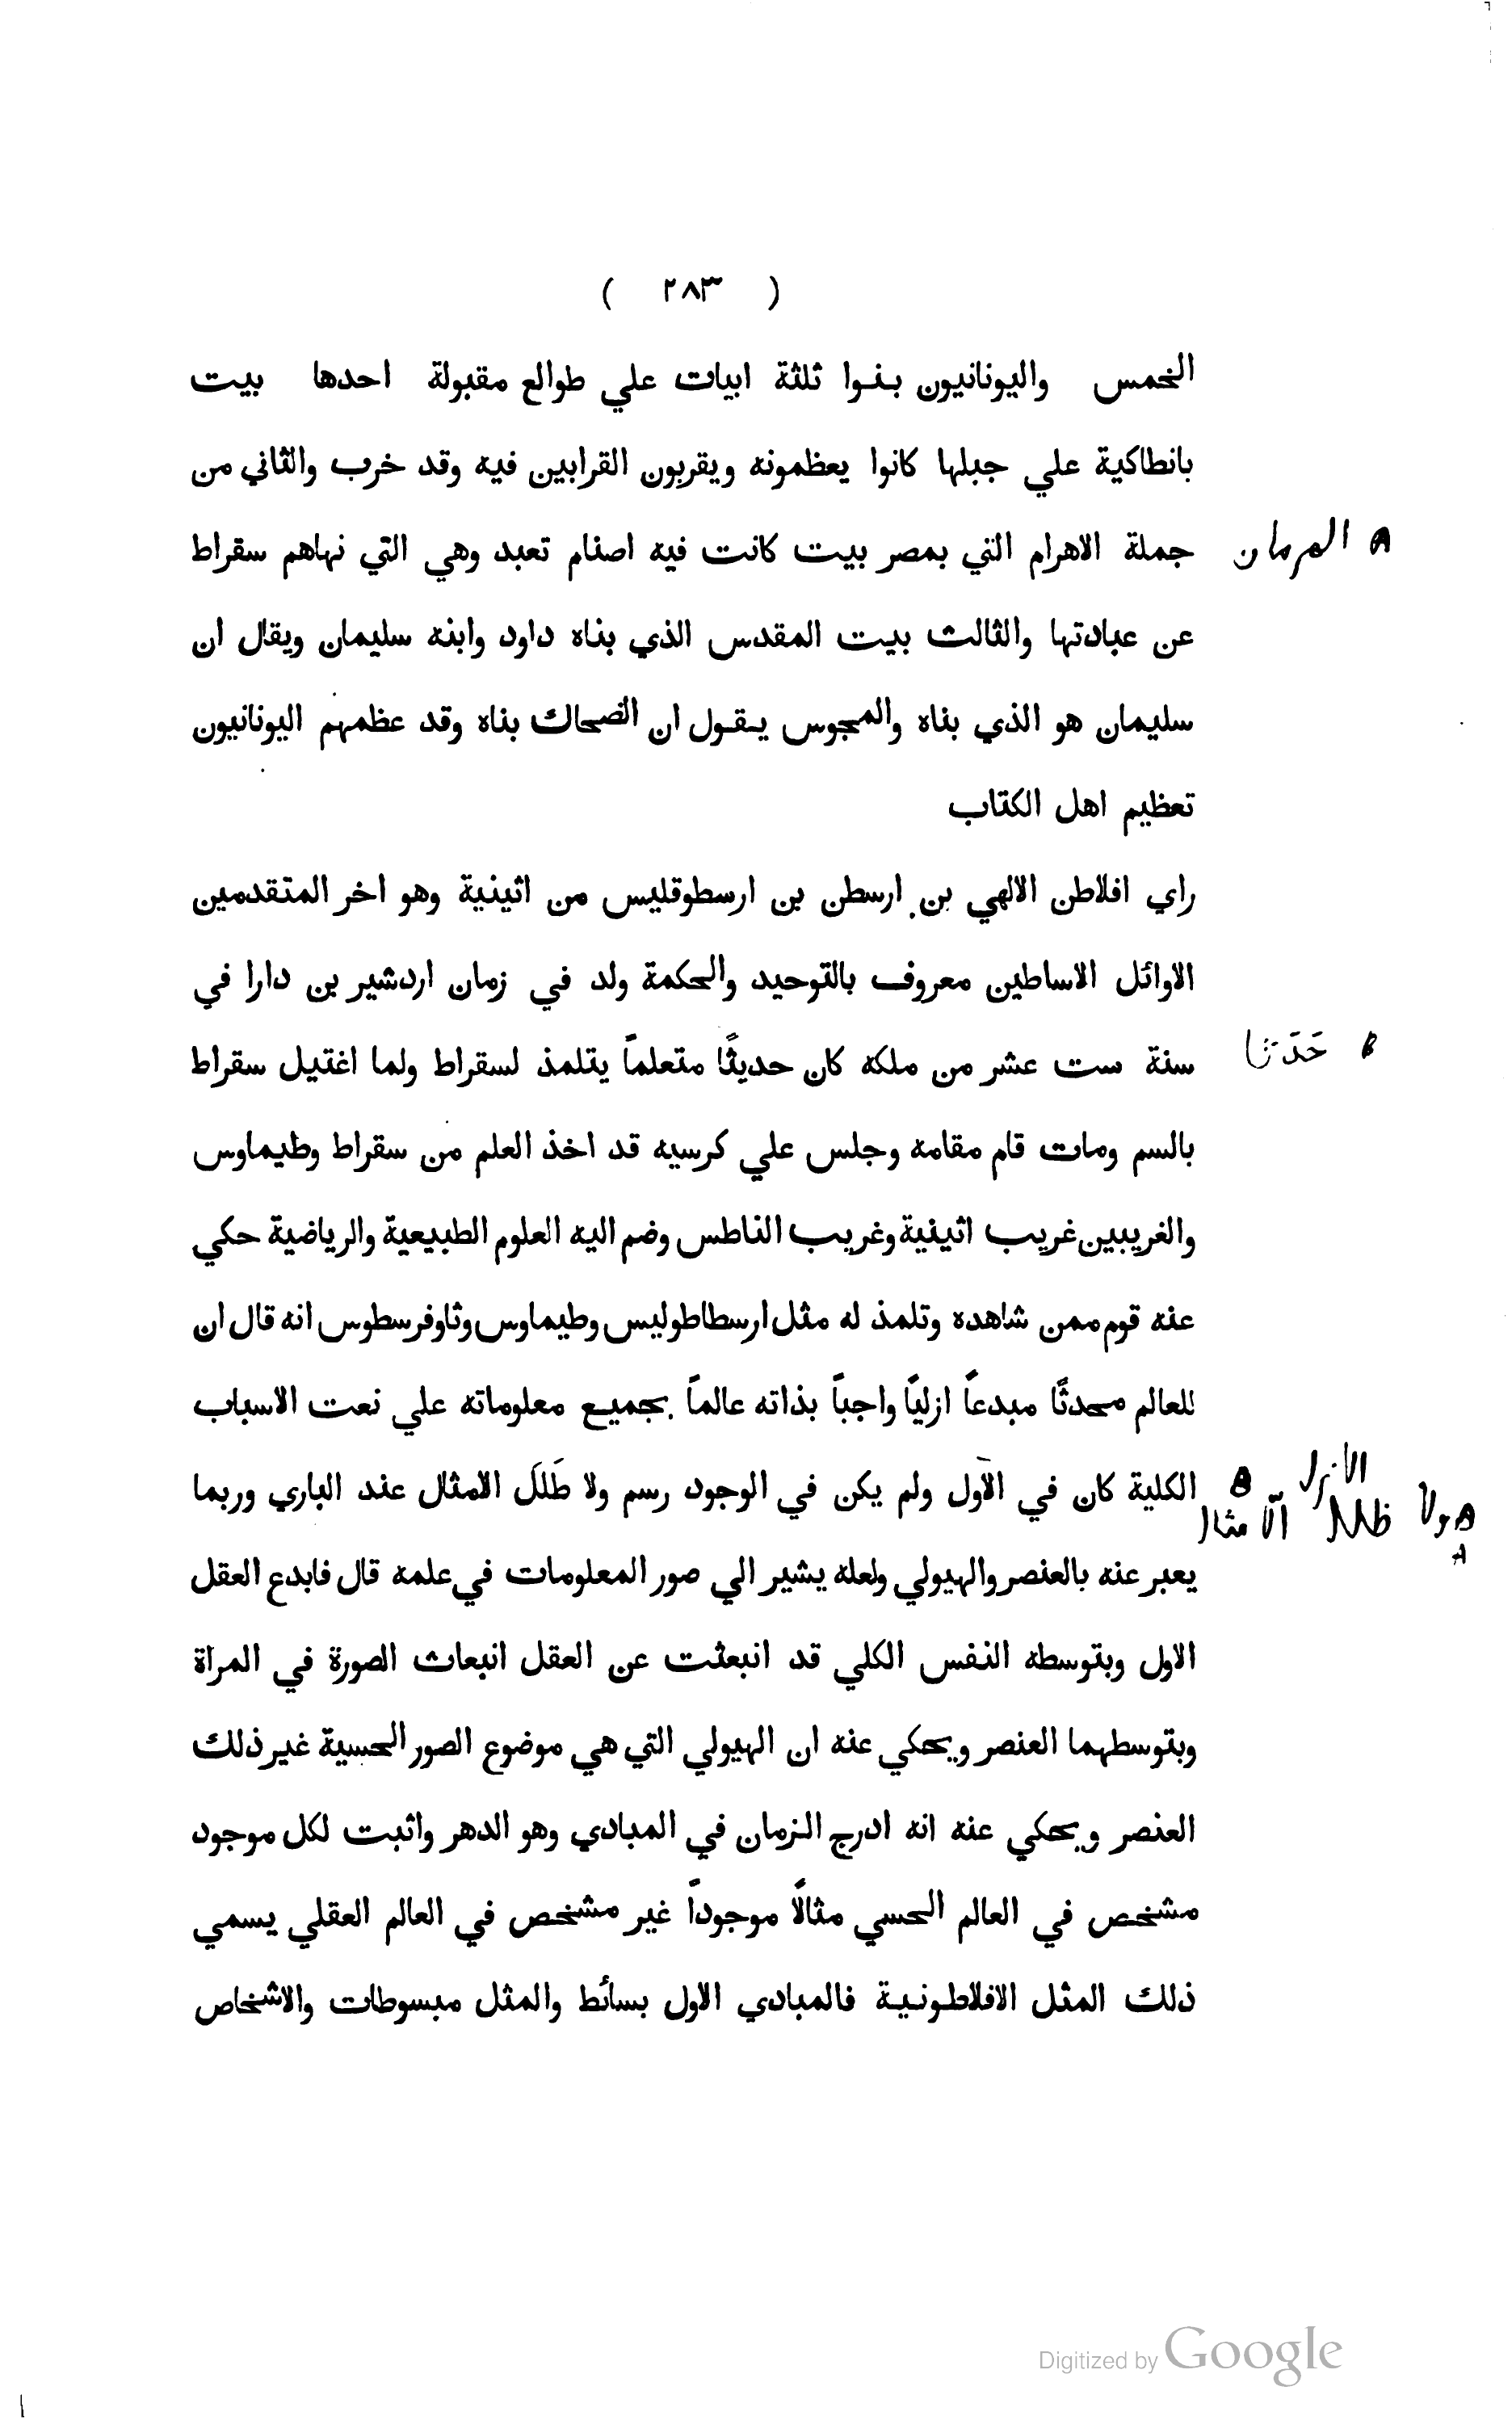 ( ٢٨٣ )
الخمس واليونانيون بنوا ثلثة ابيات علي طوالع مقبولة احدها بيت
بانطاكية علي جبلها كانوا يعظمونه ويقربون القرابين فيه وقد خرب والثاني من
جملة الاهرام التي بمصر بيت كانت فيه اصنام تعبد وهي التي نهاهم سقراط
الهرمان
عن عبادتها والثالث بيت المقدس الذي بناه داود وابنه سليمان ويقال ان
سليمان هو الذي بناه والمجوس يقول ان الضحاك بناه وقد عظمهم اليونانيون
تعظيم اهل الكتاب
راي افلاطن الالهي بن ارسطن بن ارسطوقليس من اثينية وهو اخر المتقدمين
الاوائل الاساطين معروف بالتوحيد والحكمة ولد في زمان اردشير بن دارا في
سنة ست عشر من ملكه كان حديثًا متعلماً يتلمذ لسقراط ولما اغتيل سقراط
حَدَثا
بالسم ومات قام مقامه وجلس علي كرسيه قد اخذ العلم من سقراط وطيماوس
والغريبين غريب اثينية وغريب الناطس وضم اليه العلوم الطبيعية والرياضية حكي
عنه قوم ممن شاهده وتلمذ له مثل ارسطاطوليس وطيماوس وثاوفرسطوس انه قال ان
للعالم محدثًا مبدعاً ازلياً واجباً بذاته عالماً بجميع معلوماته علي نعت الاسباب
الكلية كان في الاول ولم يكن في الوجود رسم ولا طَلَلَ الامثال عند الباري وربما
الازل
ولا ظلل الّا مثال
يعبر عنه بالعنصر والهيولي ولعله يشير الي صور المعلومات في علمه قال فابدع العقل
الاول وبتوسطه النفس الكلي قد انبعثت عن العقل انبعاث الصورة في المراة
وبتوسطهما العنصر ويحكي عنه ان الهيولي التي هي موضوع الصور الحسية غير ذلك
العنصر ويحكي عنه انه ادرج الزمان في المبادي وهو الدهر واثبت لكل موجود
مشخص في العالم الحسي مثالًا موجوداً غير مشخص في العالم العقلي يسمي
ذلك المثل الافلاطونية فالمبادي الاول بسائط والمثل مبسوطات والاشخاص
Digitized by Google